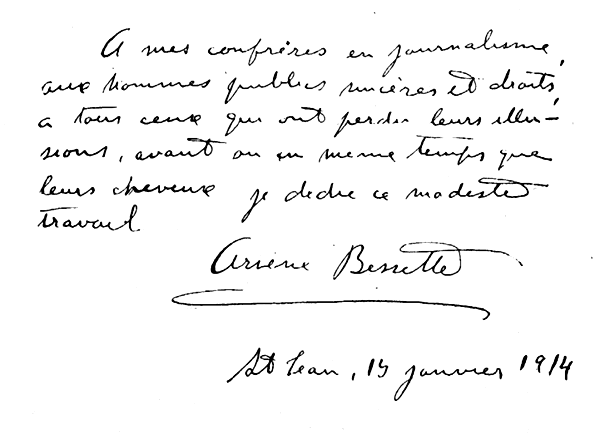 A mes confrères en journalisme,
aux hommes publics sincères et droits,
a tous ceux qui ont perdu leurs illu-
sions, avant ou en meme temps que
leurs cheveux je dedie ce modeste
travail.
Arsène Bessette
St Jean, 15 janvier 1914